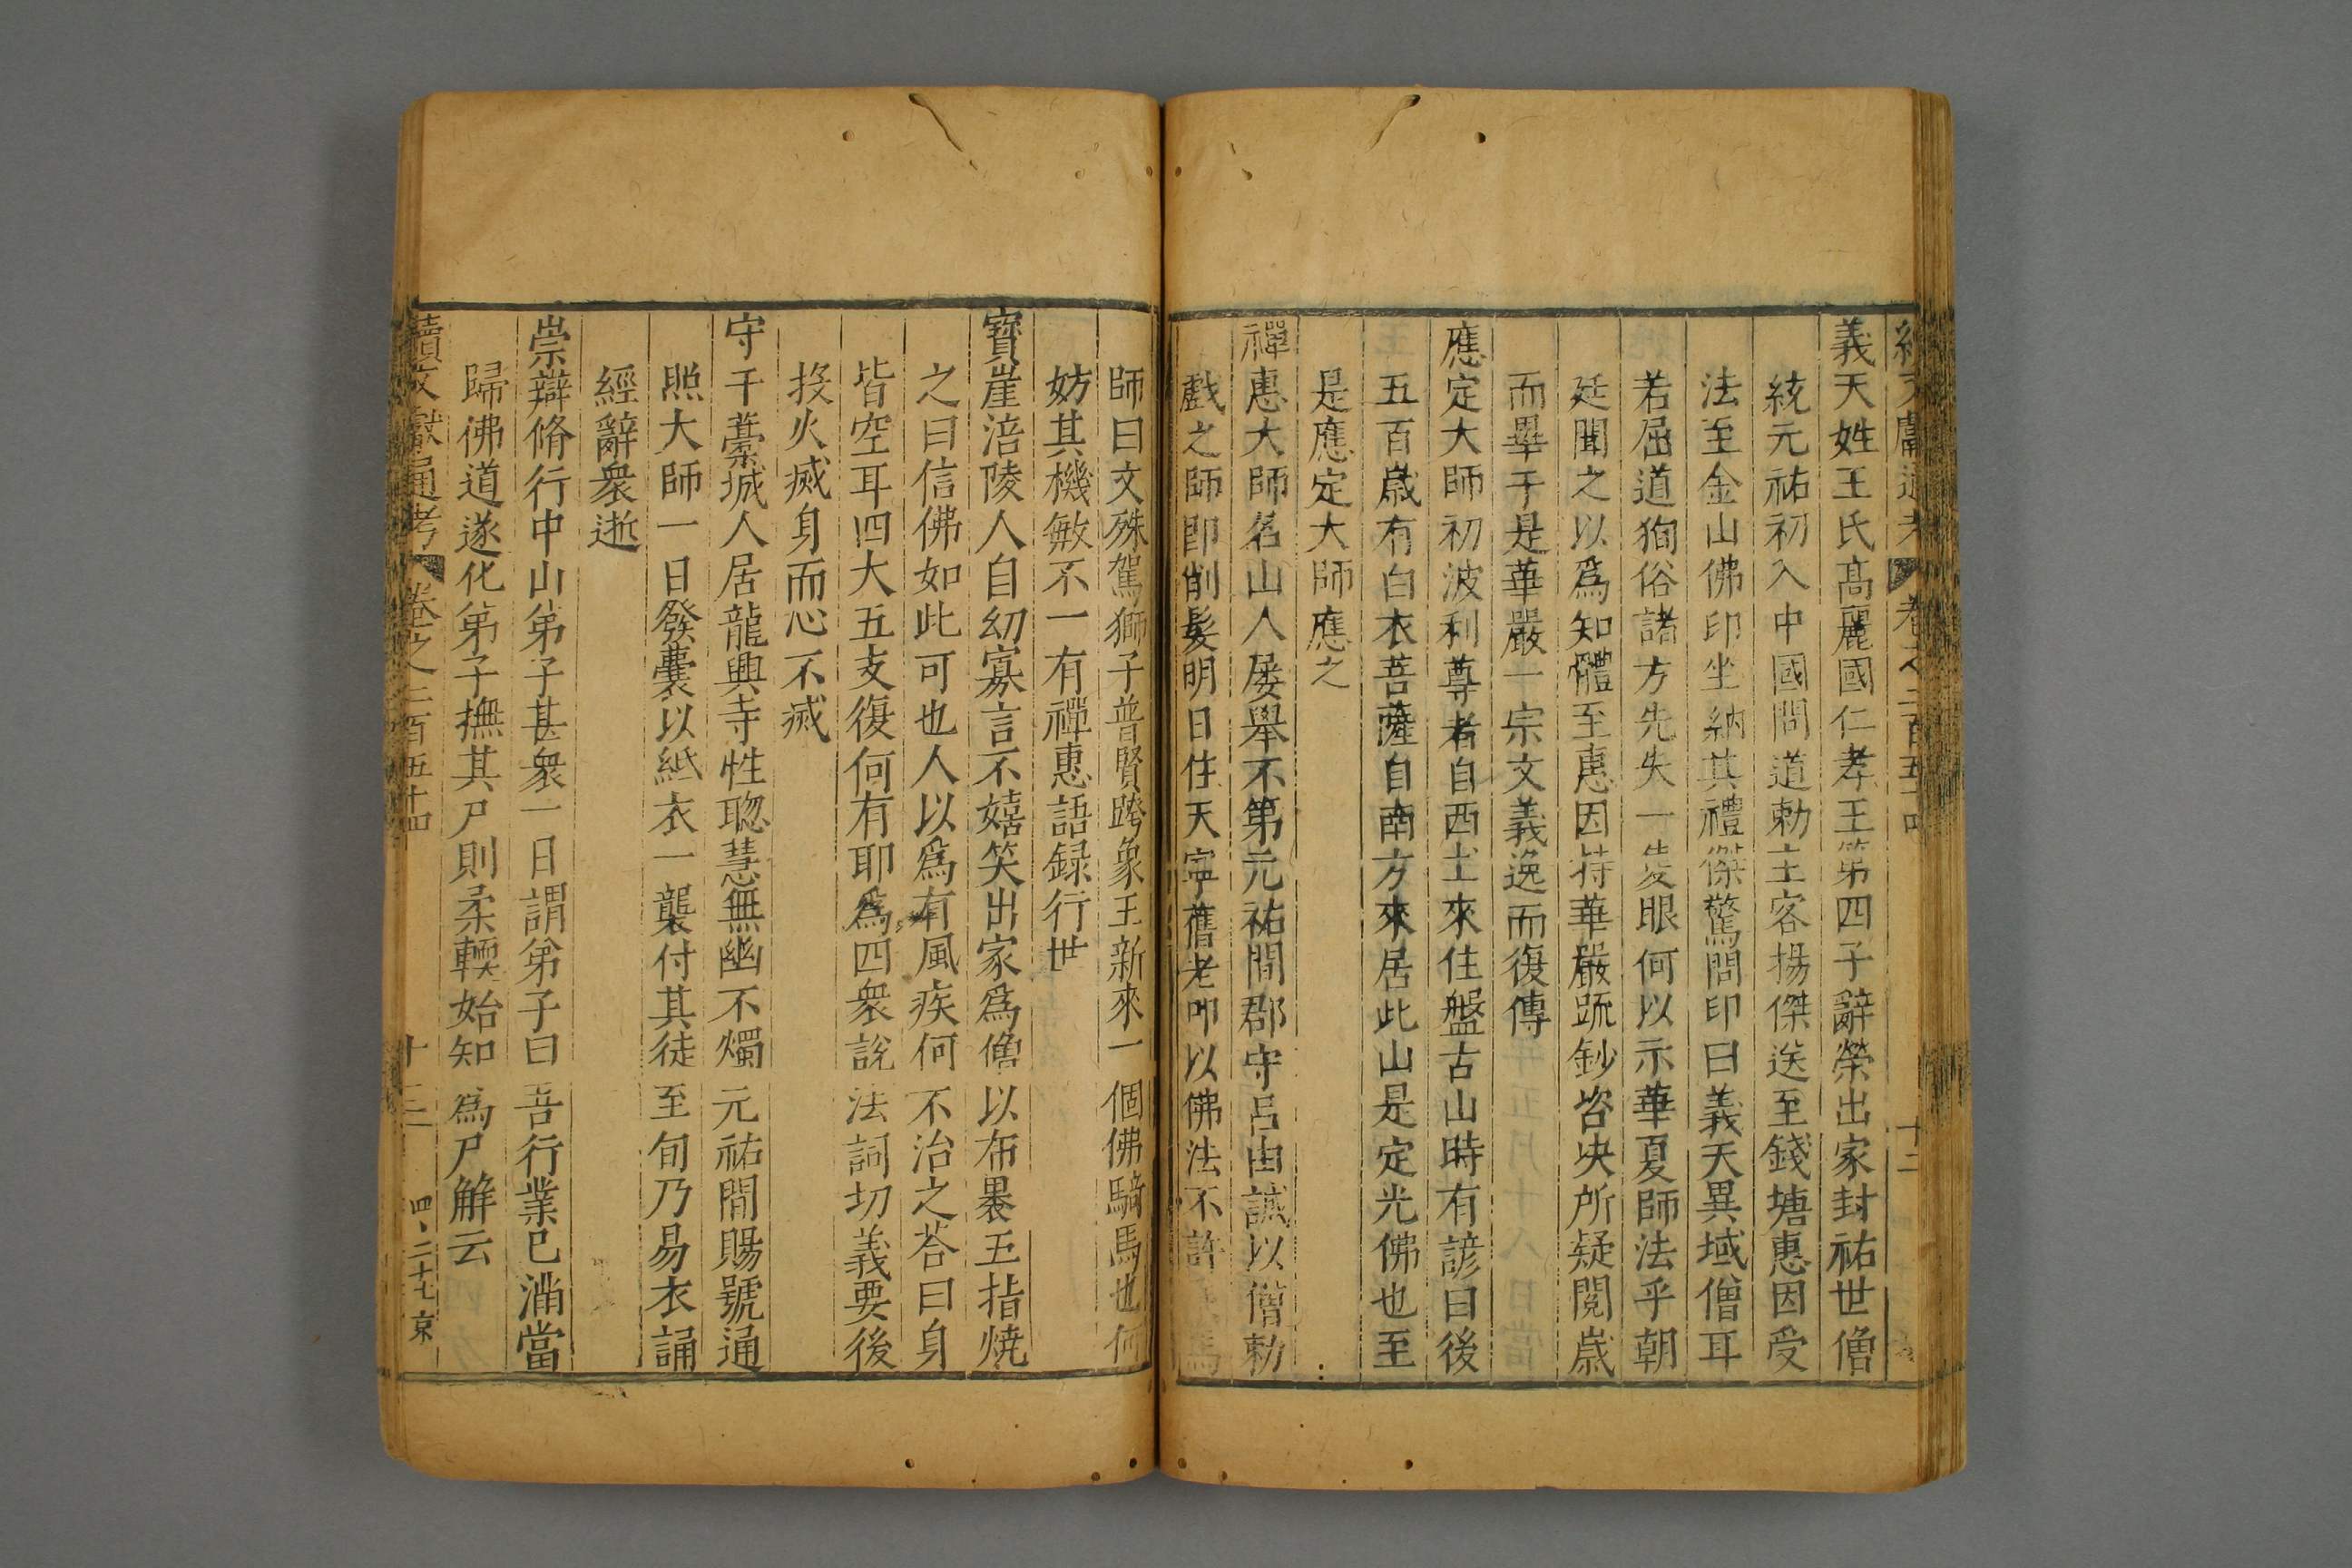 續文獻通考 卷之二百五十四 十二
義天姓王氏高麗國仁孝王第四子辭榮出家封祐世僧
統元祐初入中國問道勅主客揚傑送至錢塘惠因受
法至金山佛印坐納其禮傑驚問印曰義天異域僧耳
若屈道狥俗諸方先失一隻眼何以示華夏師法乎朝
廷聞之以爲知體至惠因持華嚴䟽鈔咨决所疑閲歲
而畢于是華嚴一宗文義逸而復傳
應定大師初波利尊者自西土來住盤古山時有諺曰後
五百歲有白衣菩薩自南方來居此山是定光佛也至
是應定大師應之
禪惠大師名山人屡舉不第元祐間郡守呂由誠以僧勅
戲之師即削髮明日住天寧舊老叩以佛法不許
師曰文殊駕獅子普賢跨象王新來一個佛騎馬也何
妨其機敏不一有禪惠語録行世
寳崖涪陵人自幻寡言不嬉笑出家爲僧以布褁五指燒
之曰信佛如此可也人以爲有風疾何不治之荅曰身
皆空耳四大五支復何有耶爲四衆說法詞切義要後
投火㓕身而心不㓕
守千藁城人居龍興寺性聦慧無幽不燭元祐間賜號通
照大師一日發囊以紙衣一襲付其徒至旬乃易衣誦
經辭衆逝
崇辯脩行中山弟子甚衆一日謂弟子曰吾行業已滿當
歸佛道遂化弟子撫其尸則柔輭始知爲尸解云
續文獻通考 卷之二百五十四 十二 四、二十七 京